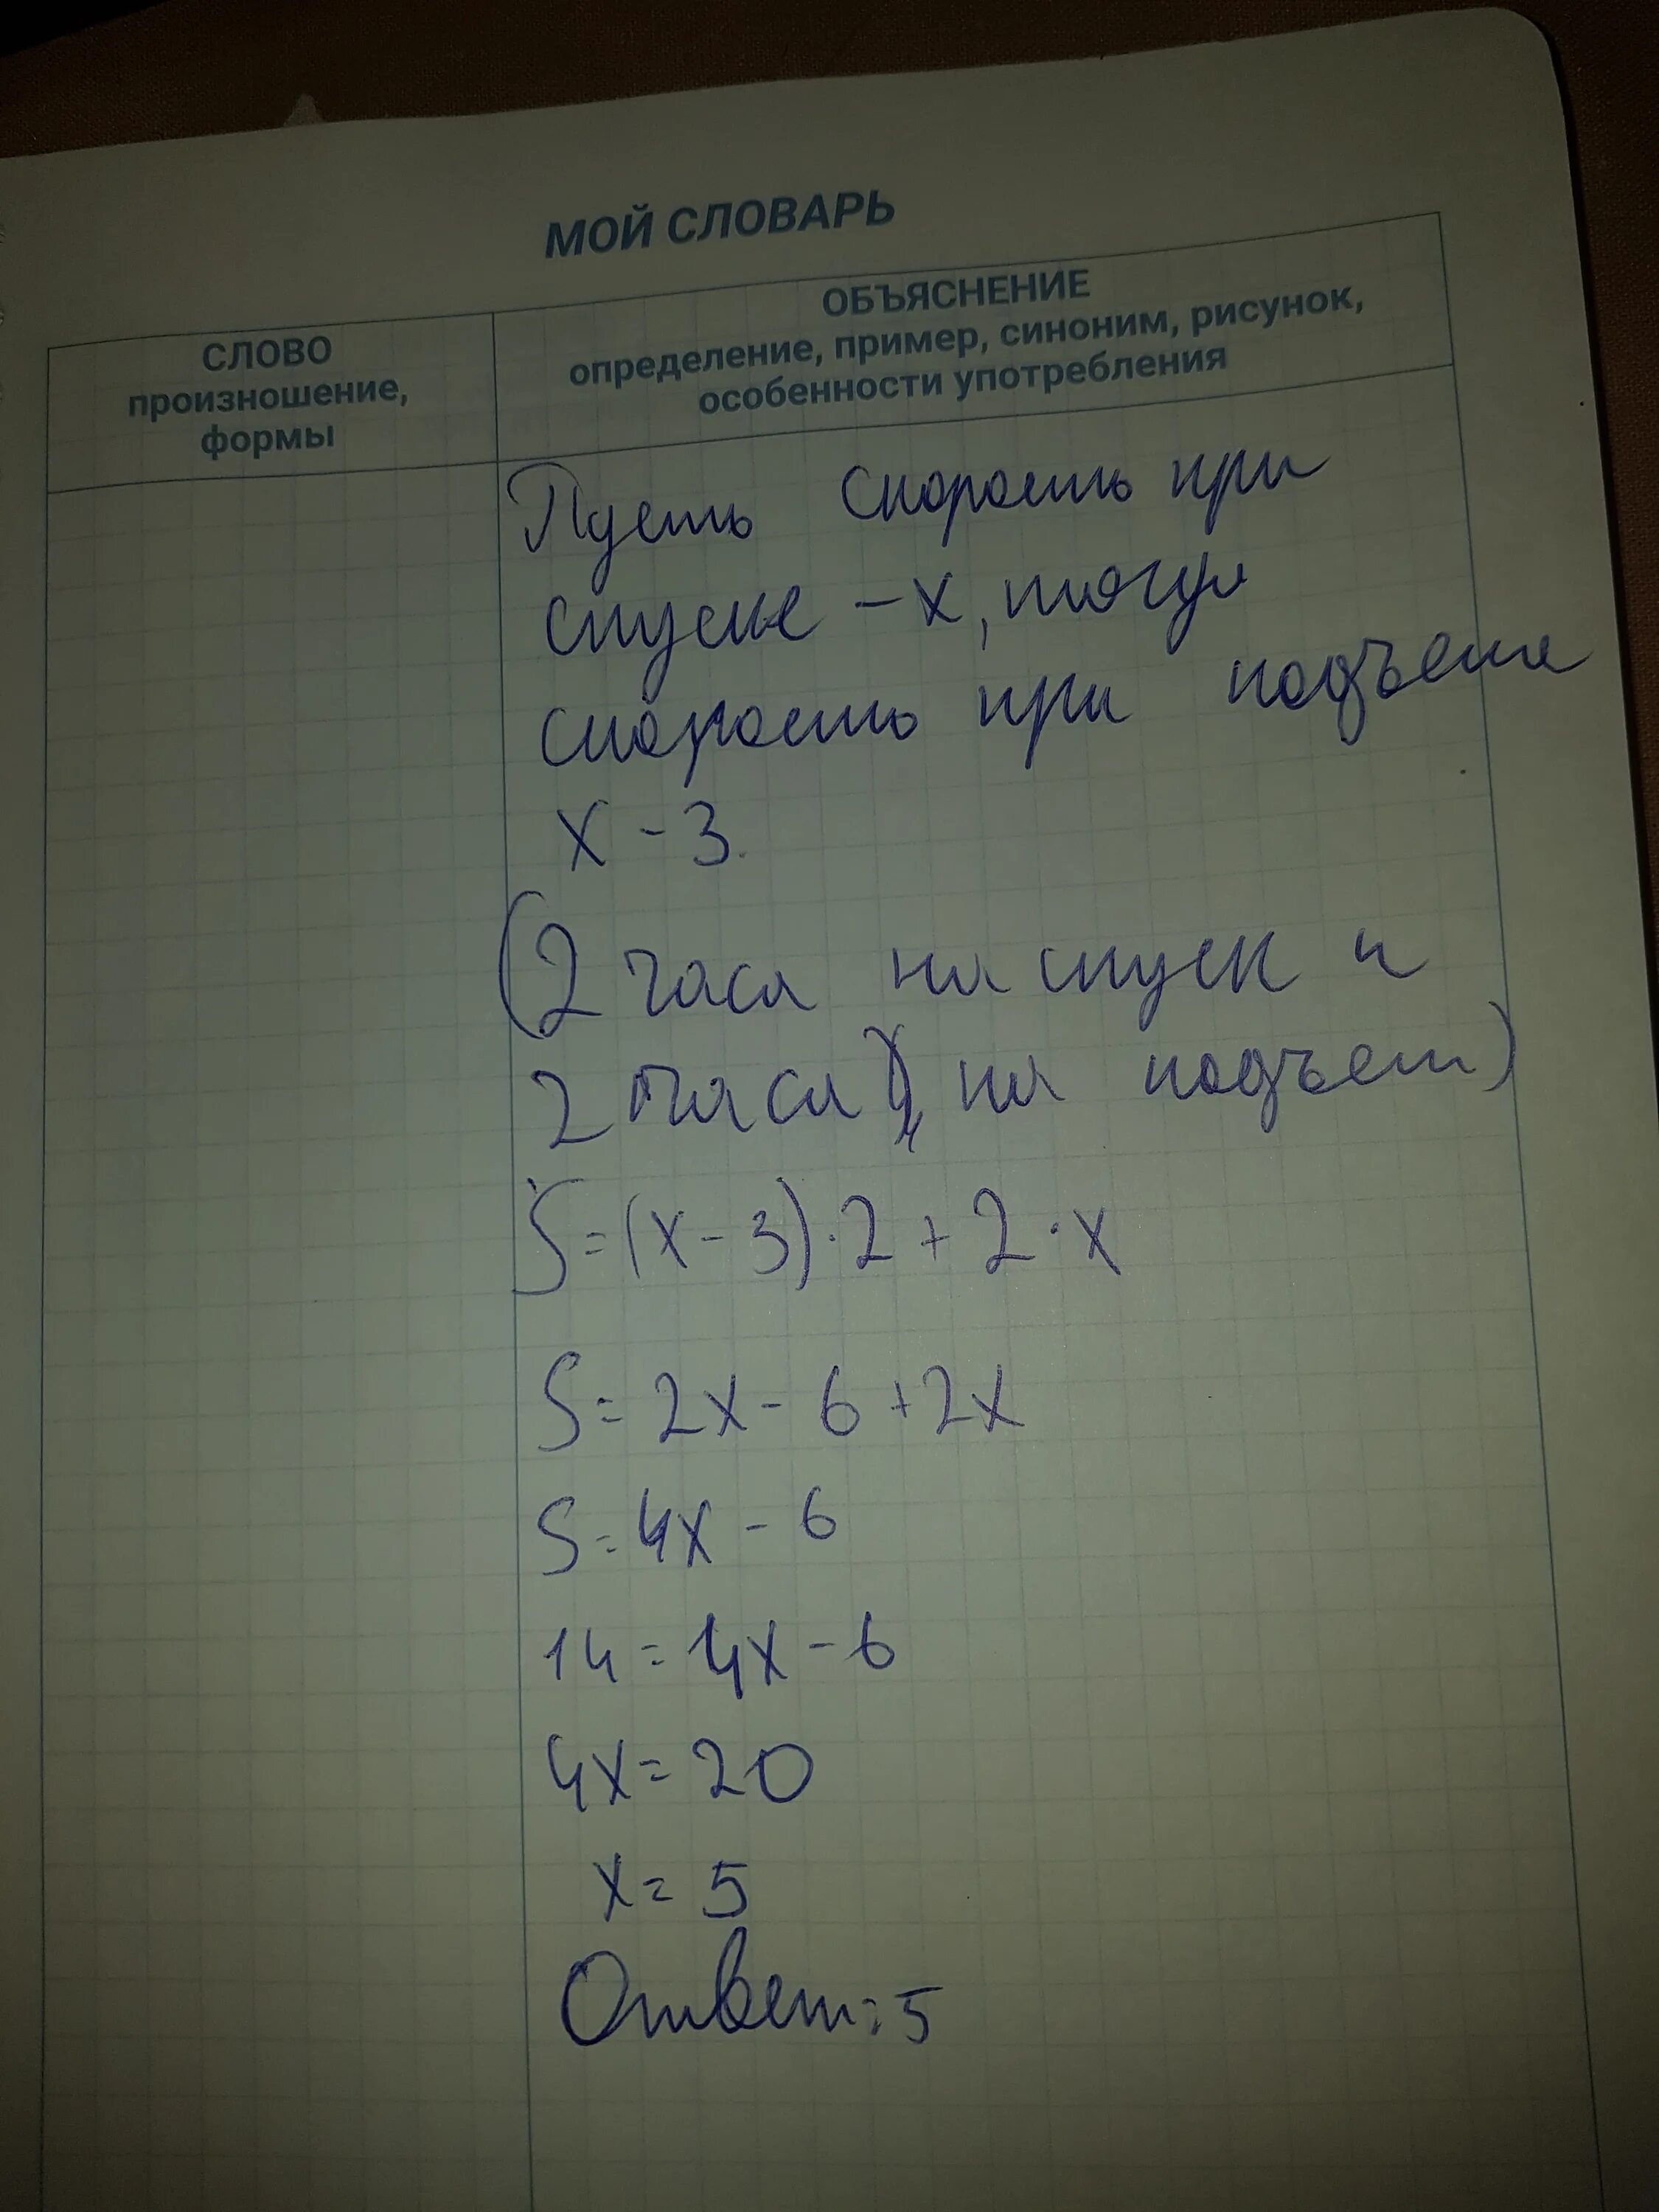 МОЙ СЛОВАРЬ
СЛОВО
произношение,
формы
ОБЪЯСНЕНИЕ
определение, пример, синоним, рисунок,
особенности употребления
Пусть скорость при
спуске - x, тогда
скорость при подъеме
x - 3.
(2 часа на спуск и
2 часа на подъем)
S = (x - 3) · 2 + 2 · x
S = 2x - 6 + 2x
S = 4x - 6
14 = 4x - 6
4x = 20
x = 5
Ответ: 5